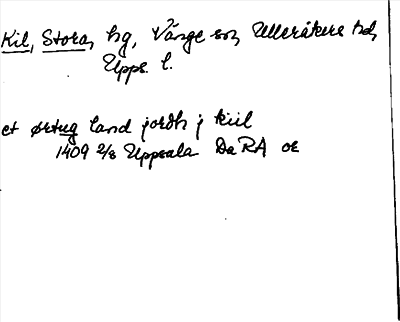 Kil, Stora, hg, Vänge sn, Ulleråkers hd,
Upps. l.
et ørtug land jordh j kiil
1409 2/8 Uppsala DaRA or